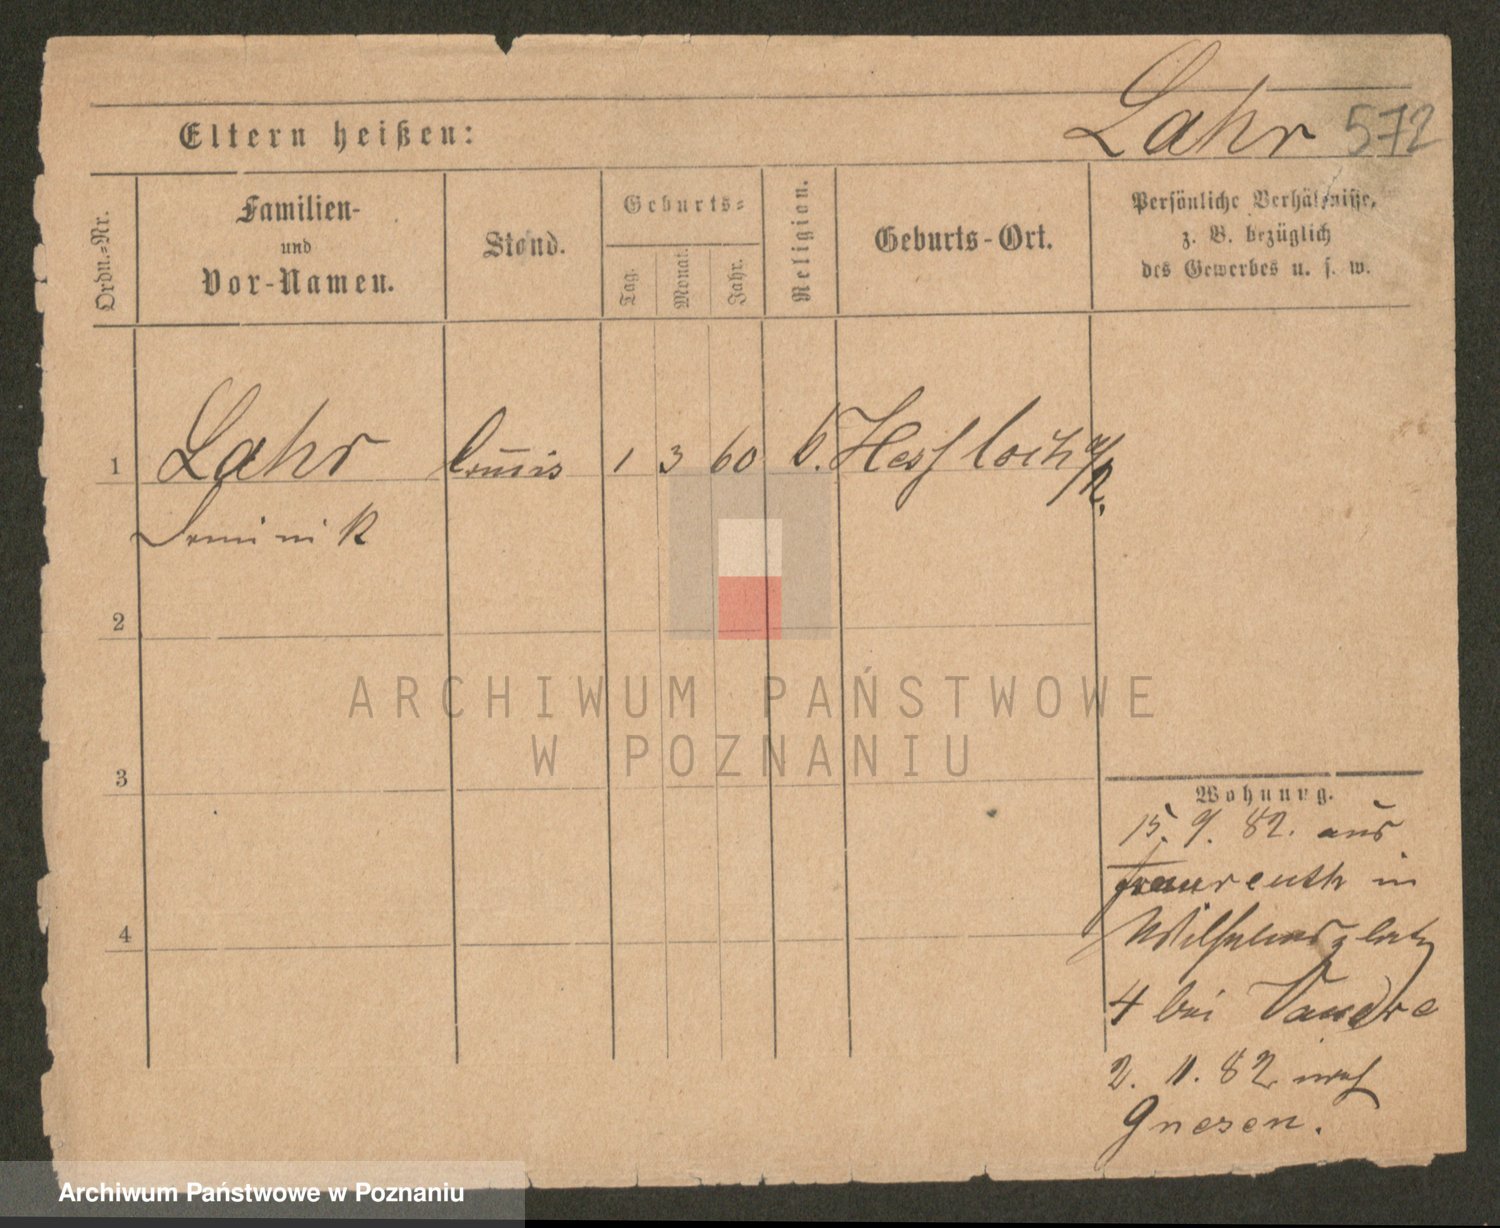 Lahr 572
Eltern heißen:
Ordn.-Nr.
Familien-
und
Vor-Namen.
Stand.
Geburts-
Tag.
Monat.
Jahr.
Religion.
Geburts-Ort.
Persönliche Verhältnisse,
z. B. bezüglich
des Gewerbes u. s. w.
1 Lahr Commis 1 3 60 Hessloch
Dominik
2
3
4
Wohnung.
15. 9. 82. aus
in
Wilhelmsplatz
4 bei
2. 11. 82 nach
Gnesen.
ARCHIWUM PAŃSTWOWE
W POZNANIU
Archiwum Państwowe w Poznaniu